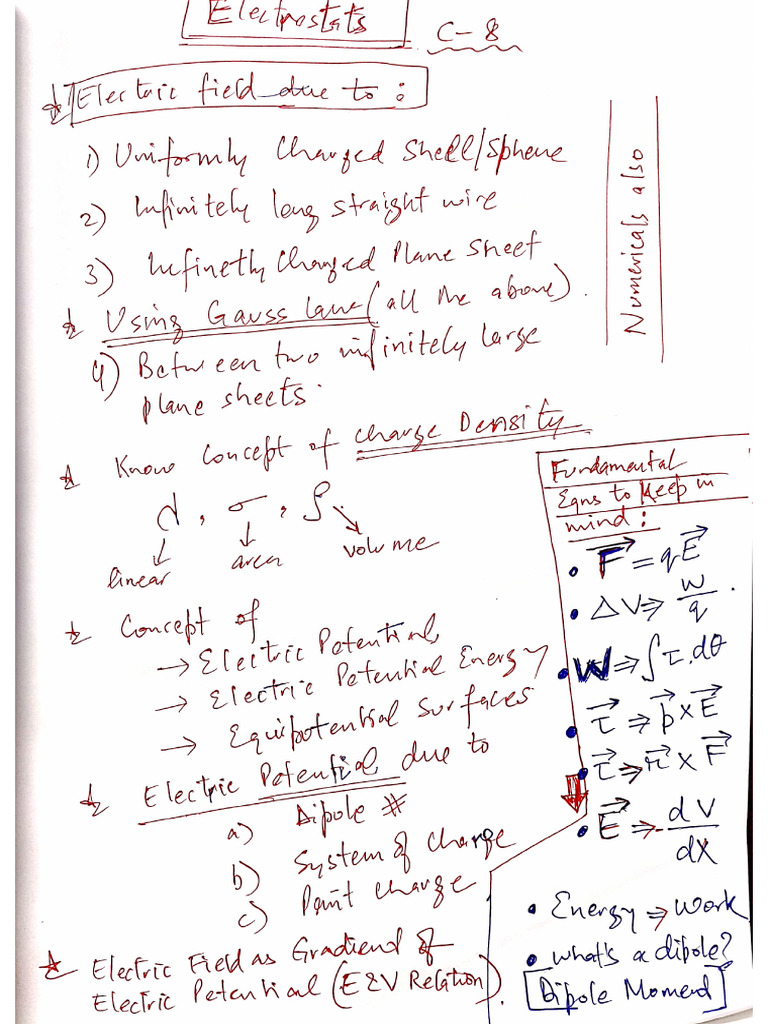 Electrostats
C-8
Electric field due to :
1) Uniformly Charged Shell/Sphere
2) Infinitely long straight wire
3) Infinetly Charged Plane Sheet
Using Gauss law (all the above).
4) Between two infinitely large
plane sheets.
Numericals also
Know Concept of Charge Density
λ, σ, ρ.
linear
area
volume
Concept of
→ Electric Potential,
→ Electric Potential Energy
→ Equipotential Surfaces
Electric Potential, due to
a) Dipole #
b) System of Charge
c) Point Charge
Electric Field as Gradiend of
Electric Potential (E&V Relation).
Fundamental
Eqns to Keep in
mind :
• F = qE
• ΔV ⇒ W/q.
• W ⇒ ∫τ.dθ
• τ ⇒ p × E
• τ ⇒ r × F
• E ⇒ - dV/dX
• Energy ⇒ Work
• What's a dipole?
[Dipole Moment]